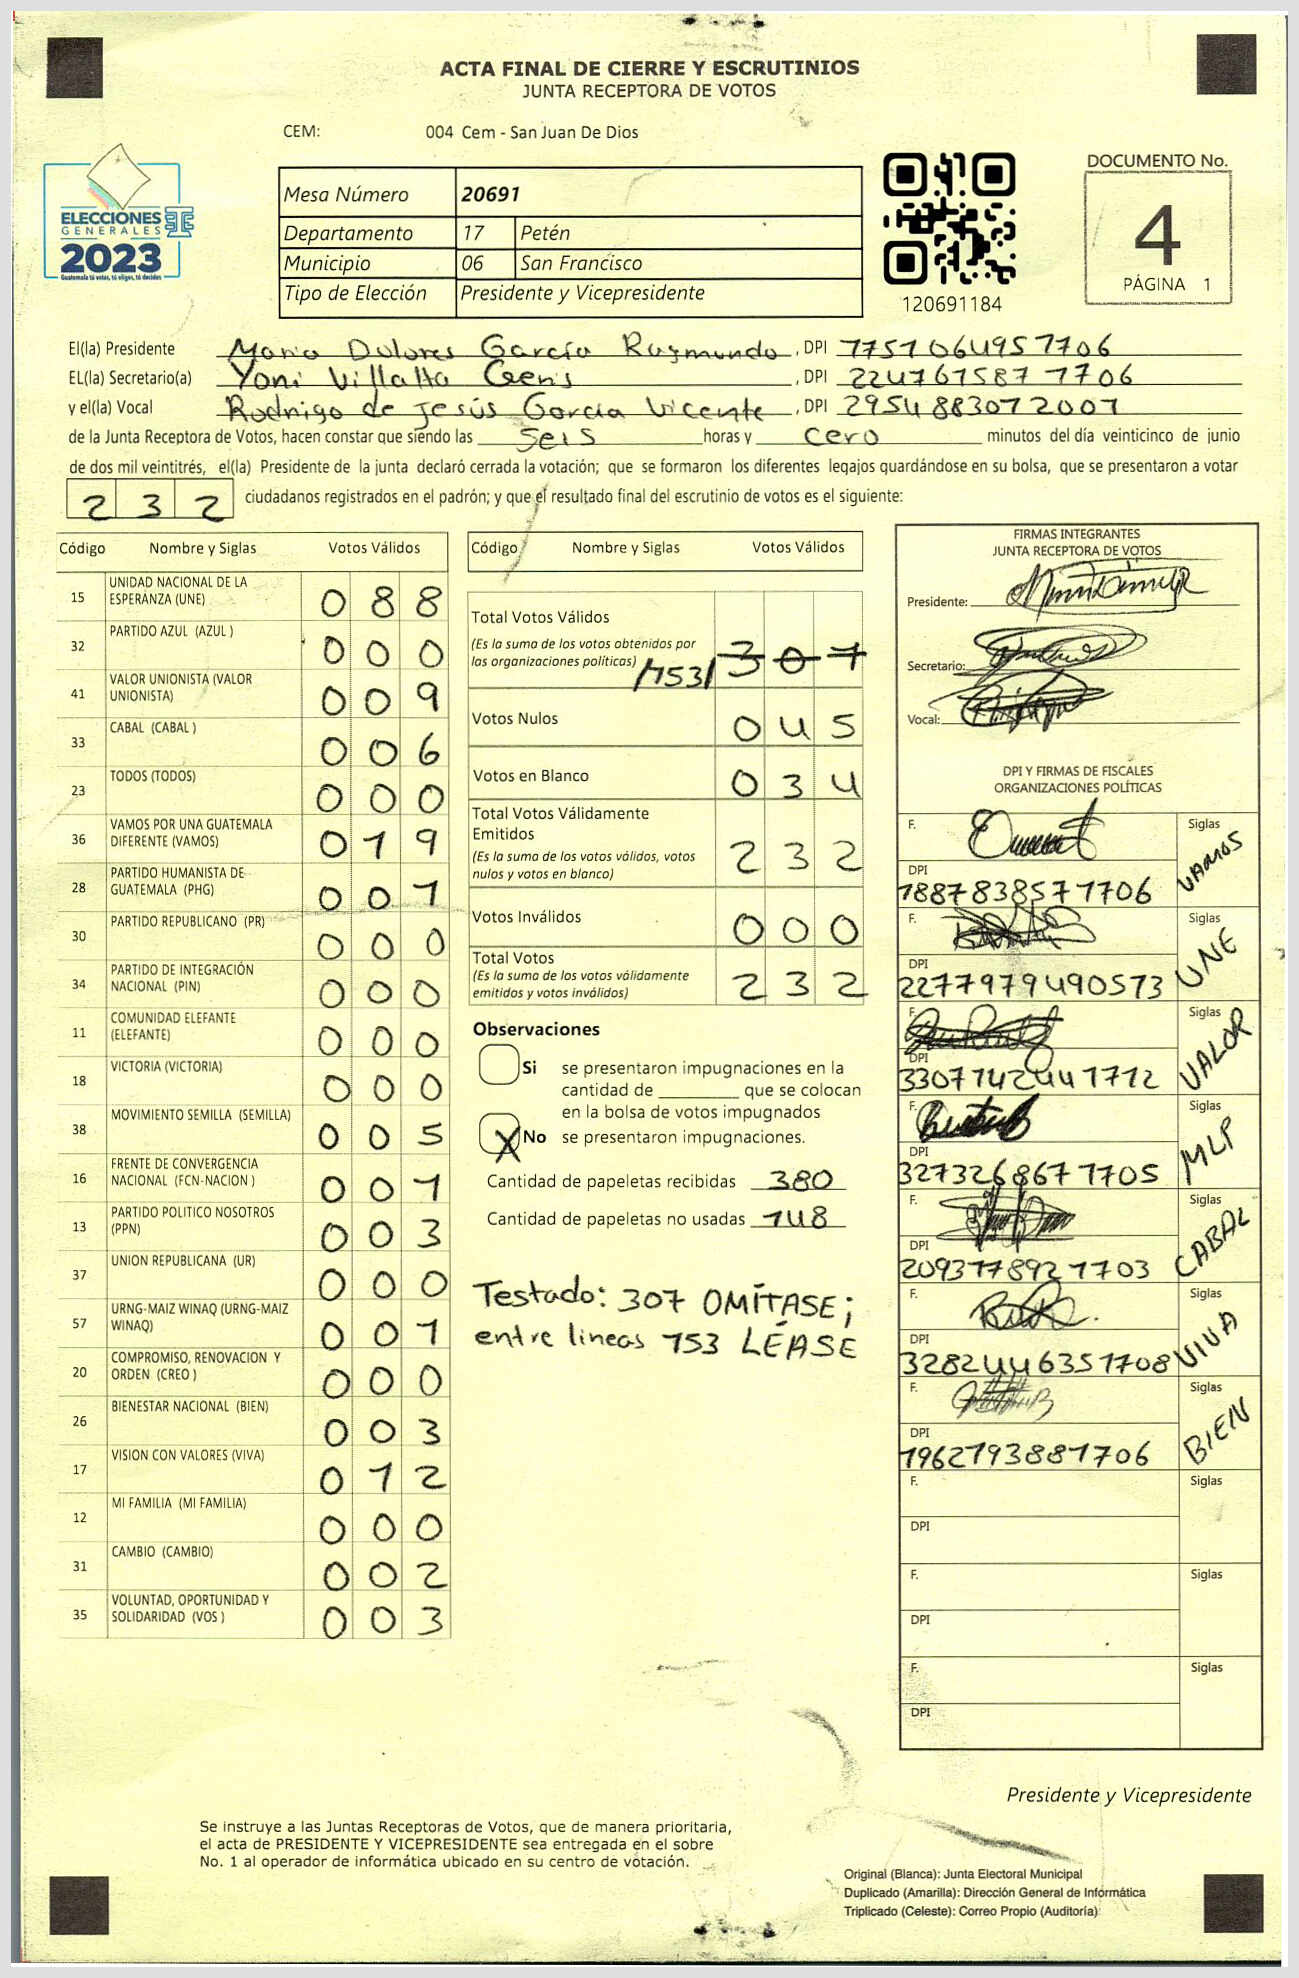 ACTA FINAL DE CIERRE Y ESCRUTINIOS
JUNTA RECEPTORA DE VOTOS
CEM: 004 Cem - San Juan De Dios
ELECCIONES
GENERALES
2023
Guatemala tú votas, tú eliges, tú decides
Mesa Número 20691
Departamento 17 Petén
Municipio 06 San Francisco
Tipo de Elección Presidente y Vicepresidente
120691184
DOCUMENTO No.
4
PÁGINA 1
El(la) Presidente Maria Dolores García Raymundo, DPI 7757064957706
EL(la) Secretario(a) Yoni Villalta, DPI 2247675877706
y el(la) Vocal Rodrigo de Jesús García Vicente, DPI 2954883072007
de la Junta Receptora de Votos, hacen constar que siendo las seis horas y cero minutos del día veinticinco de junio
de dos mil veintitrés, el(la) Presidente de la junta declaró cerrada la votación; que se formaron los diferentes legajos guardándose en su bolsa, que se presentaron a votar
232 ciudadanos registrados en el padrón; y que el resultado final del escrutinio de votos es el siguiente:
Código Nombre y Siglas Votos Válidos
15 UNIDAD NACIONAL DE LA ESPERANZA (UNE) 088
32 PARTIDO AZUL (AZUL ) 000
41 VALOR UNIONISTA (VALOR UNIONISTA) 009
33 CABAL (CABAL ) 006
23 TODOS (TODOS) 000
36 VAMOS POR UNA GUATEMALA DIFERENTE (VAMOS) 019
28 PARTIDO HUMANISTA DE GUATEMALA (PHG) 001
30 PARTIDO REPUBLICANO (PR) 000
34 PARTIDO DE INTEGRACIÓN NACIONAL (PIN) 000
11 COMUNIDAD ELEFANTE (ELEFANTE) 000
18 VICTORIA (VICTORIA) 000
38 MOVIMIENTO SEMILLA (SEMILLA) 005
16 FRENTE DE CONVERGENCIA NACIONAL (FCN-NACION ) 001
13 PARTIDO POLITICO NOSOTROS (PPN) 003
37 UNION REPUBLICANA (UR) 000
57 URNG-MAIZ WINAQ (URNG-MAIZ WINAQ) 001
20 COMPROMISO, RENOVACION Y ORDEN (CREO ) 000
26 BIENESTAR NACIONAL (BIEN) 003
17 VISION CON VALORES (VIVA) 012
12 MI FAMILIA (MI FAMILIA) 000
31 CAMBIO (CAMBIO) 002
35 VOLUNTAD, OPORTUNIDAD Y SOLIDARIDAD (VOS ) 003
Código Nombre y Siglas Votos Válidos
Total Votos Válidos
(Es la suma de los votos obtenidos por
las organizaciones políticas) /153/ 307
Votos Nulos 045
Votos en Blanco 034
Total Votos Válidamente
Emitidos
(Es la suma de los votos válidos, votos
nulos y votos en blanco) 232
Votos Inválidos 000
Total Votos
(Es la suma de los votos válidamente
emitidos y votos inválidos) 232
Observaciones
Si se presentaron impugnaciones en la
cantidad de ________ que se colocan
en la bolsa de votos impugnados
X No se presentaron impugnaciones.
Cantidad de papeletas recibidas 380
Cantidad de papeletas no usadas 148
Testado: 307 OMÍTASE;
entre lineas 153 LÉASE
FIRMAS INTEGRANTES
JUNTA RECEPTORA DE VOTOS
Presidente:
Secretario:
Vocal:
DPI Y FIRMAS DE FISCALES
ORGANIZACIONES POLÍTICAS
F. Siglas VAMOS
DPI
1887838571706
F. Siglas UNE
DPI
2277979490573
F. Siglas VALOR
DPI
3307742441712
F. Siglas MLP
DPI
3273268671705
F. Siglas CABAL
DPI
2093778921703
F. Siglas VIVA
DPI
3282446351708
F. Siglas BIEN
DPI
1962793881706
F. Siglas
DPI
F. Siglas
DPI
F. Siglas
DPI
Presidente y Vicepresidente
Se instruye a las Juntas Receptoras de Votos, que de manera prioritaria,
el acta de PRESIDENTE Y VICEPRESIDENTE sea entregada en el sobre
No. 1 al operador de informática ubicado en su centro de votación.
Original (Blanca): Junta Electoral Municipal
Duplicado (Amarilla): Dirección General de Informática
Triplicado (Celeste): Correo Propio (Auditoría)